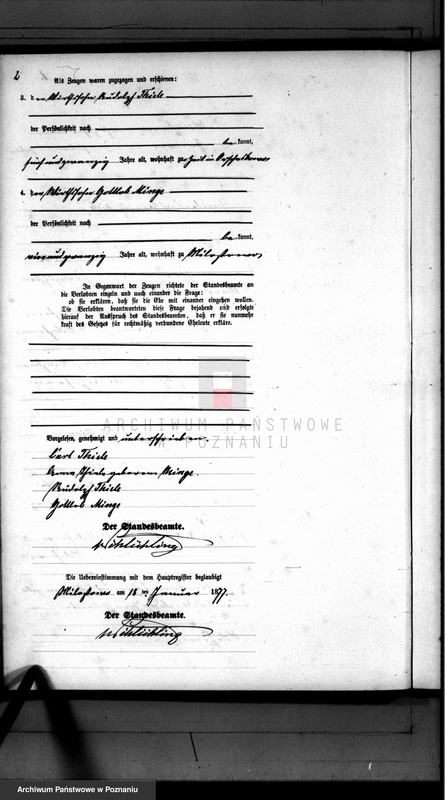 2
Als Zeugen waren zugezogen und erschienen:
3. der Wirthssohn Rudolph Thiele
der Persönlichkeit nach
be kannt,
fünfundzwanzig Jahre alt, wohnhaft zu
4. der Wirthssohn Gottlob Minge
der Persönlichkeit nach
be kannt,
vierundzwanzig Jahre alt, wohnhaft zu Milostowo
In Gegenwart der Zeugen richtete der Standesbeamte an
die Verlobten einzeln und nach einander die Frage:
ob sie erklären, daß sie die Ehe mit einander eingehen wollen.
Die Verlobten beantworteten diese Frage bejahend und erfolgte
hierauf der Ausspruch des Standesbeamten, daß er sie nunmehr
kraft des Gesetzes für rechtmäßig verbundene Eheleute erkläre.
ARCHIWUM PAŃSTWOWE
W POZNANIU
Vorgelesen, genehmigt und unterschrieben.
Carl Thiele
Anna Thiele geborene Minge.
Rudolph Thiele
Gottlob Minge
Der Standesbeamte.
Die Uebereinstimmung mit dem Hauptregister beglaubigt
Milostowo am 18 ten Januar 1877.
Der Standesbeamte.
Archiwum Państwowe w Poznaniu